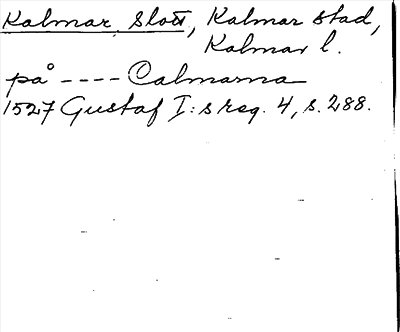 Kalmar Slott, Kalmar stad,
Kalmar l.
på ---- Calmarna
1527 Gustaf I:s reg. 4, s. 288.